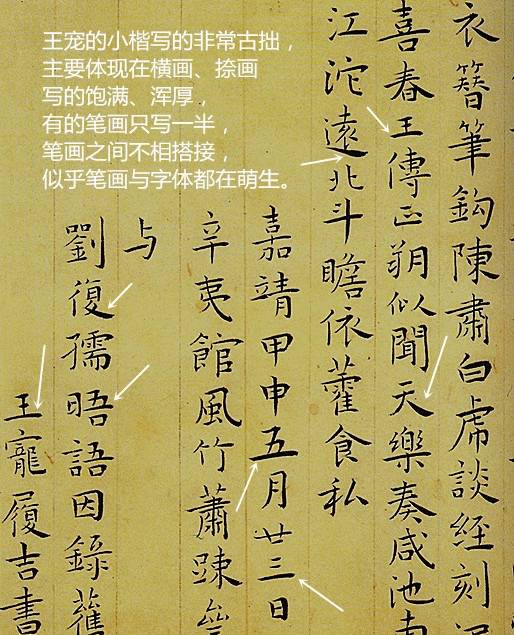 王宠的小楷写的非常古拙，
主要体现在横画、捺画
写的饱满、浑厚，
有的笔画只写一半，
笔画之间不相搭接，
似乎笔画与字体都在萌生。
衣簪筆鈎陳肅白虎談經刻
喜春王傳正朔似聞天樂奏咸池南
江沱遠北斗瞻依藿食私
嘉靖甲申五月廿三日
辛夷館風竹蕭踈
与
劉復孺晤語因錄舊
王寵履吉書